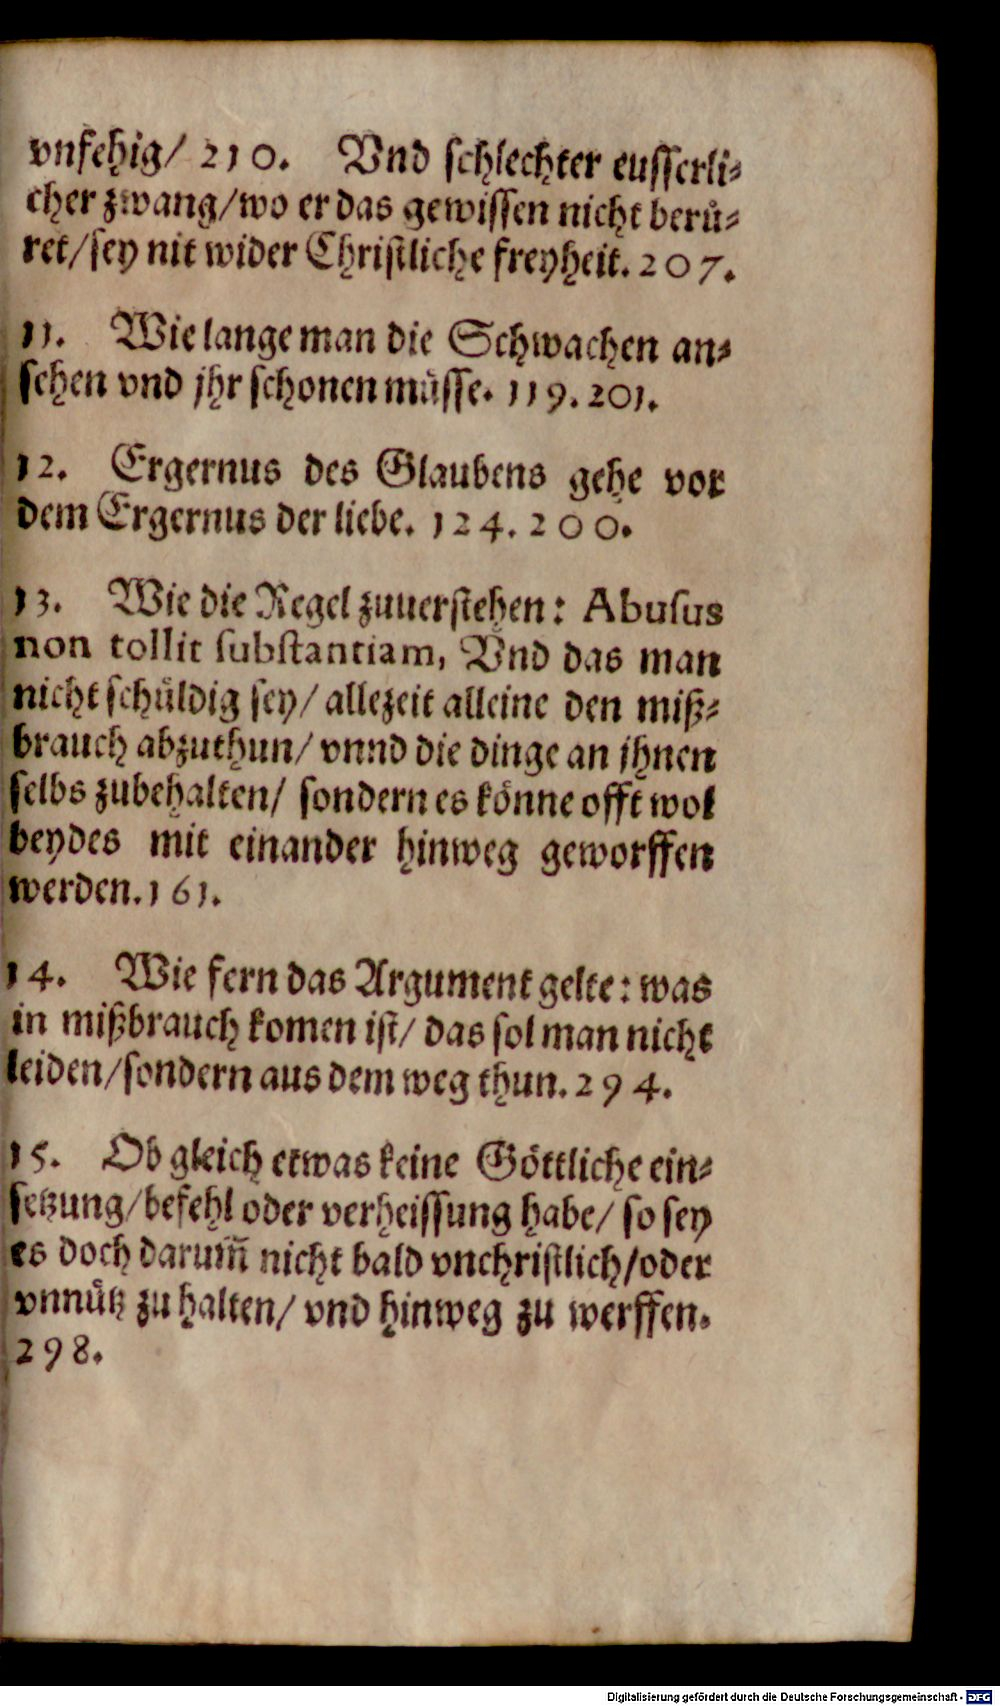 vnfehig/ 210. Vnd schlechter eusserli⸗
cher zwang/wo er das gewissen nicht berů⸗
ret/sey nit wider Christliche freyheit. 207.
11. Wie lange man die Schwachen an⸗
sehen vnd jhr schonen můsse. 119. 201.
12. Ergernus des Glaubens gehe vor
dem Ergernus der liebe. 124. 200.
13. Wie die Regel zuuerstehen: Abusus
non tollit substantiam, Vnd das man
nicht schůldig sey/ allezeit alleine den miß⸗
brauch abzuthun/ vnnd die dinge an jhnen
selbs zubehalten/ sondern es kőnne offt wol
beydes mit einander hinweg geworffen
werden. 161.
14. Wie fern das Argument gelte: was
in mißbrauch komen ist/ das sol man nicht
leiden/sondern aus dem weg thun. 294.
15. Ob gleich etwas keine Gőttliche ein⸗
setzung/befehl oder verheissung habe/ so sey
es doch darum̃ nicht bald vnchristlich/oder
vnnůtz zu halten/ vnd hinweg zu werffen.
298.
Digitalisierung gefördert durch die Deutsche Forschungsgemeinschaft - DFG